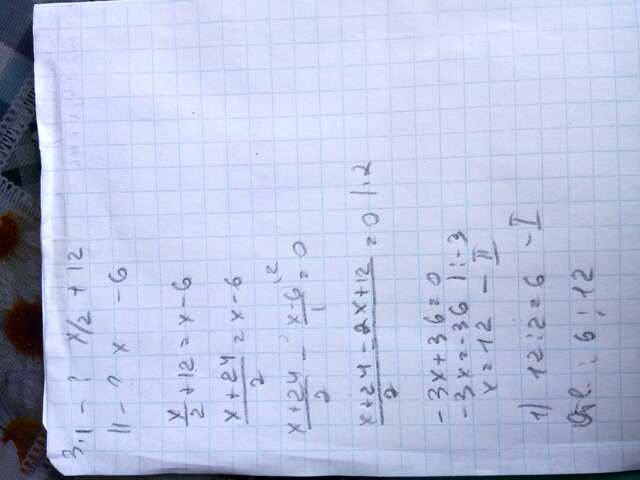 3. I - ? x/2 + 12
II - ? x - 6
x/2 + 12 = x - 6
(x+24)/2 = x - 6
(x+24)/2 - (x-6)/1 \2 = 0
(x+24-2x+12)/2 = 0 |·2
-3x+36=0
-3x=-36 |:-3
x=12 - II
1) 12:2=6 - I
: 6 ; 12